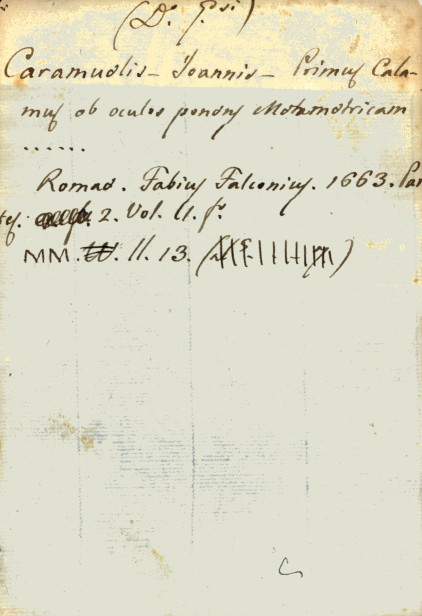 (D. f.si)
Caramuelis - Joannis - Primus Cala-
mus ob oculos ponens Metametricam
......
Romae. Fabius Falconius. 1663. Par
tes. 2. Vol. II. f.
MM. II. 13. (